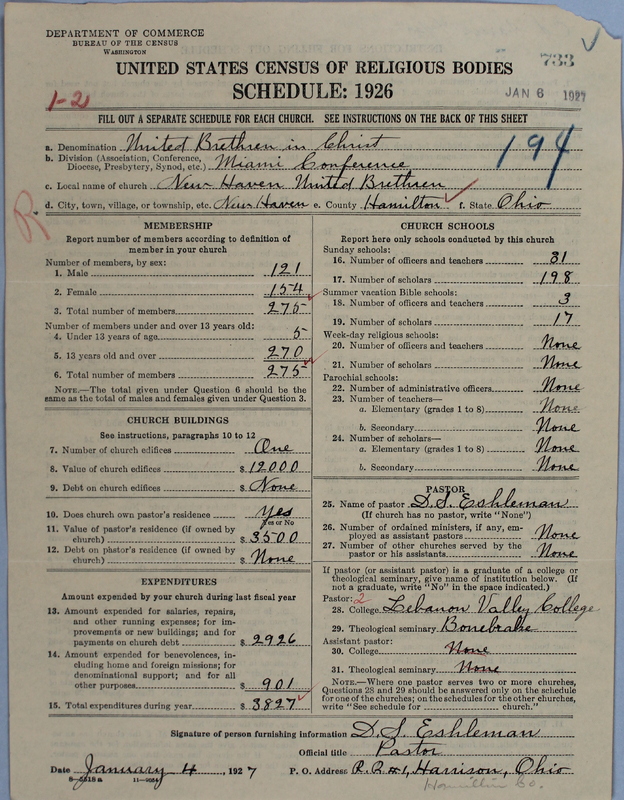 DEPARTMENT OF COMMERCE
BUREAU OF THE CENSUS
WASHINGTON
733
UNITED STATES CENSUS OF RELIGIOUS BODIES
SCHEDULE: 1926
1-2
JAN 6 1927
FILL OUT A SEPARATE SCHEDULE FOR EACH CHURCH. SEE INSTRUCTIONS ON THE BACK OF THIS SHEET
194
a. Denomination United Brethren in Christ
b. Division (Association, Conference, Diocese, Presbytery, Synod, etc.) Miami Conference
c. Local name of church New Haven United Brethren
d. City, town, village, or township, etc. New Haven e. County Hamilton f. State Ohio
R
MEMBERSHIP
Report number of members according to definition of
member in your church
Number of members, by sex:
1. Male 121
2. Female 154
3. Total number of members 275
Number of members under and over 13 years old:
4. Under 13 years of age 5
5. 13 years old and over 270
6. Total number of members 275
NOTE.—The total given under Question 6 should be the
same as the total of males and females given under Question 3.
CHURCH BUILDINGS
See instructions, paragraphs 10 to 12
7. Number of church edifices One
8. Value of church edifices $ 12000
9. Debt on church edifices $ None
10. Does church own pastor's residence Yes
Yes or No
11. Value of pastor's residence (if owned by
church) $ 3500
12. Debt on pastor's residence (if owned by
church) $ None
EXPENDITURES
Amount expended by your church during last fiscal year
13. Amount expended for salaries, repairs,
and other running expenses; for im-
provements or new buildings; and for
payments on church debt $ 2926
14. Amount expended for benevolences, in-
cluding home and foreign missions; for
denominational support; and for all
other purposes $ 901
15. Total expenditures during year $ 3827
CHURCH SCHOOLS
Report here only schools conducted by this church
Sunday schools:
16. Number of officers and teachers 31
17. Number of scholars 198
Summer vacation Bible schools:
18. Number of officers and teachers 3
19. Number of scholars 17
Week-day religious schools:
20. Number of officers and teachers None
21. Number of scholars None
Parochial schools:
22. Number of administrative officers None
23. Number of teachers—
a. Elementary (grades 1 to 8) None
b. Secondary None
24. Number of scholars—
a. Elementary (grades 1 to 8) None
b. Secondary None
PASTOR
25. Name of pastor D. S. Eshleman
(If church has no pastor, write "None")
26. Number of ordained ministers, if any, em-
ployed as assistant pastors None
27. Number of other churches served by the
pastor or his assistants None
If pastor (or assistant pastor) is a graduate of a college or
theological seminary, give name of institution below. (If
not a graduate, write "No" in the space indicated.)
Pastor: 2
28. College Lebanon Valley College
29. Theological seminary Bonebrake
Assistant pastor:
30. College None
31. Theological seminary None
NOTE.—Where one pastor serves two or more churches,
Questions 28 and 29 should be answered only on the schedule
for one of the churches; on the schedules for the other churches,
write "See schedule for ........ church."
Signature of person furnishing information D. S. Eshleman
Official title Pastor
Date January 4, 1927 P. O. Address R. R. #1, Harrison, Ohio
Hamilton Co.